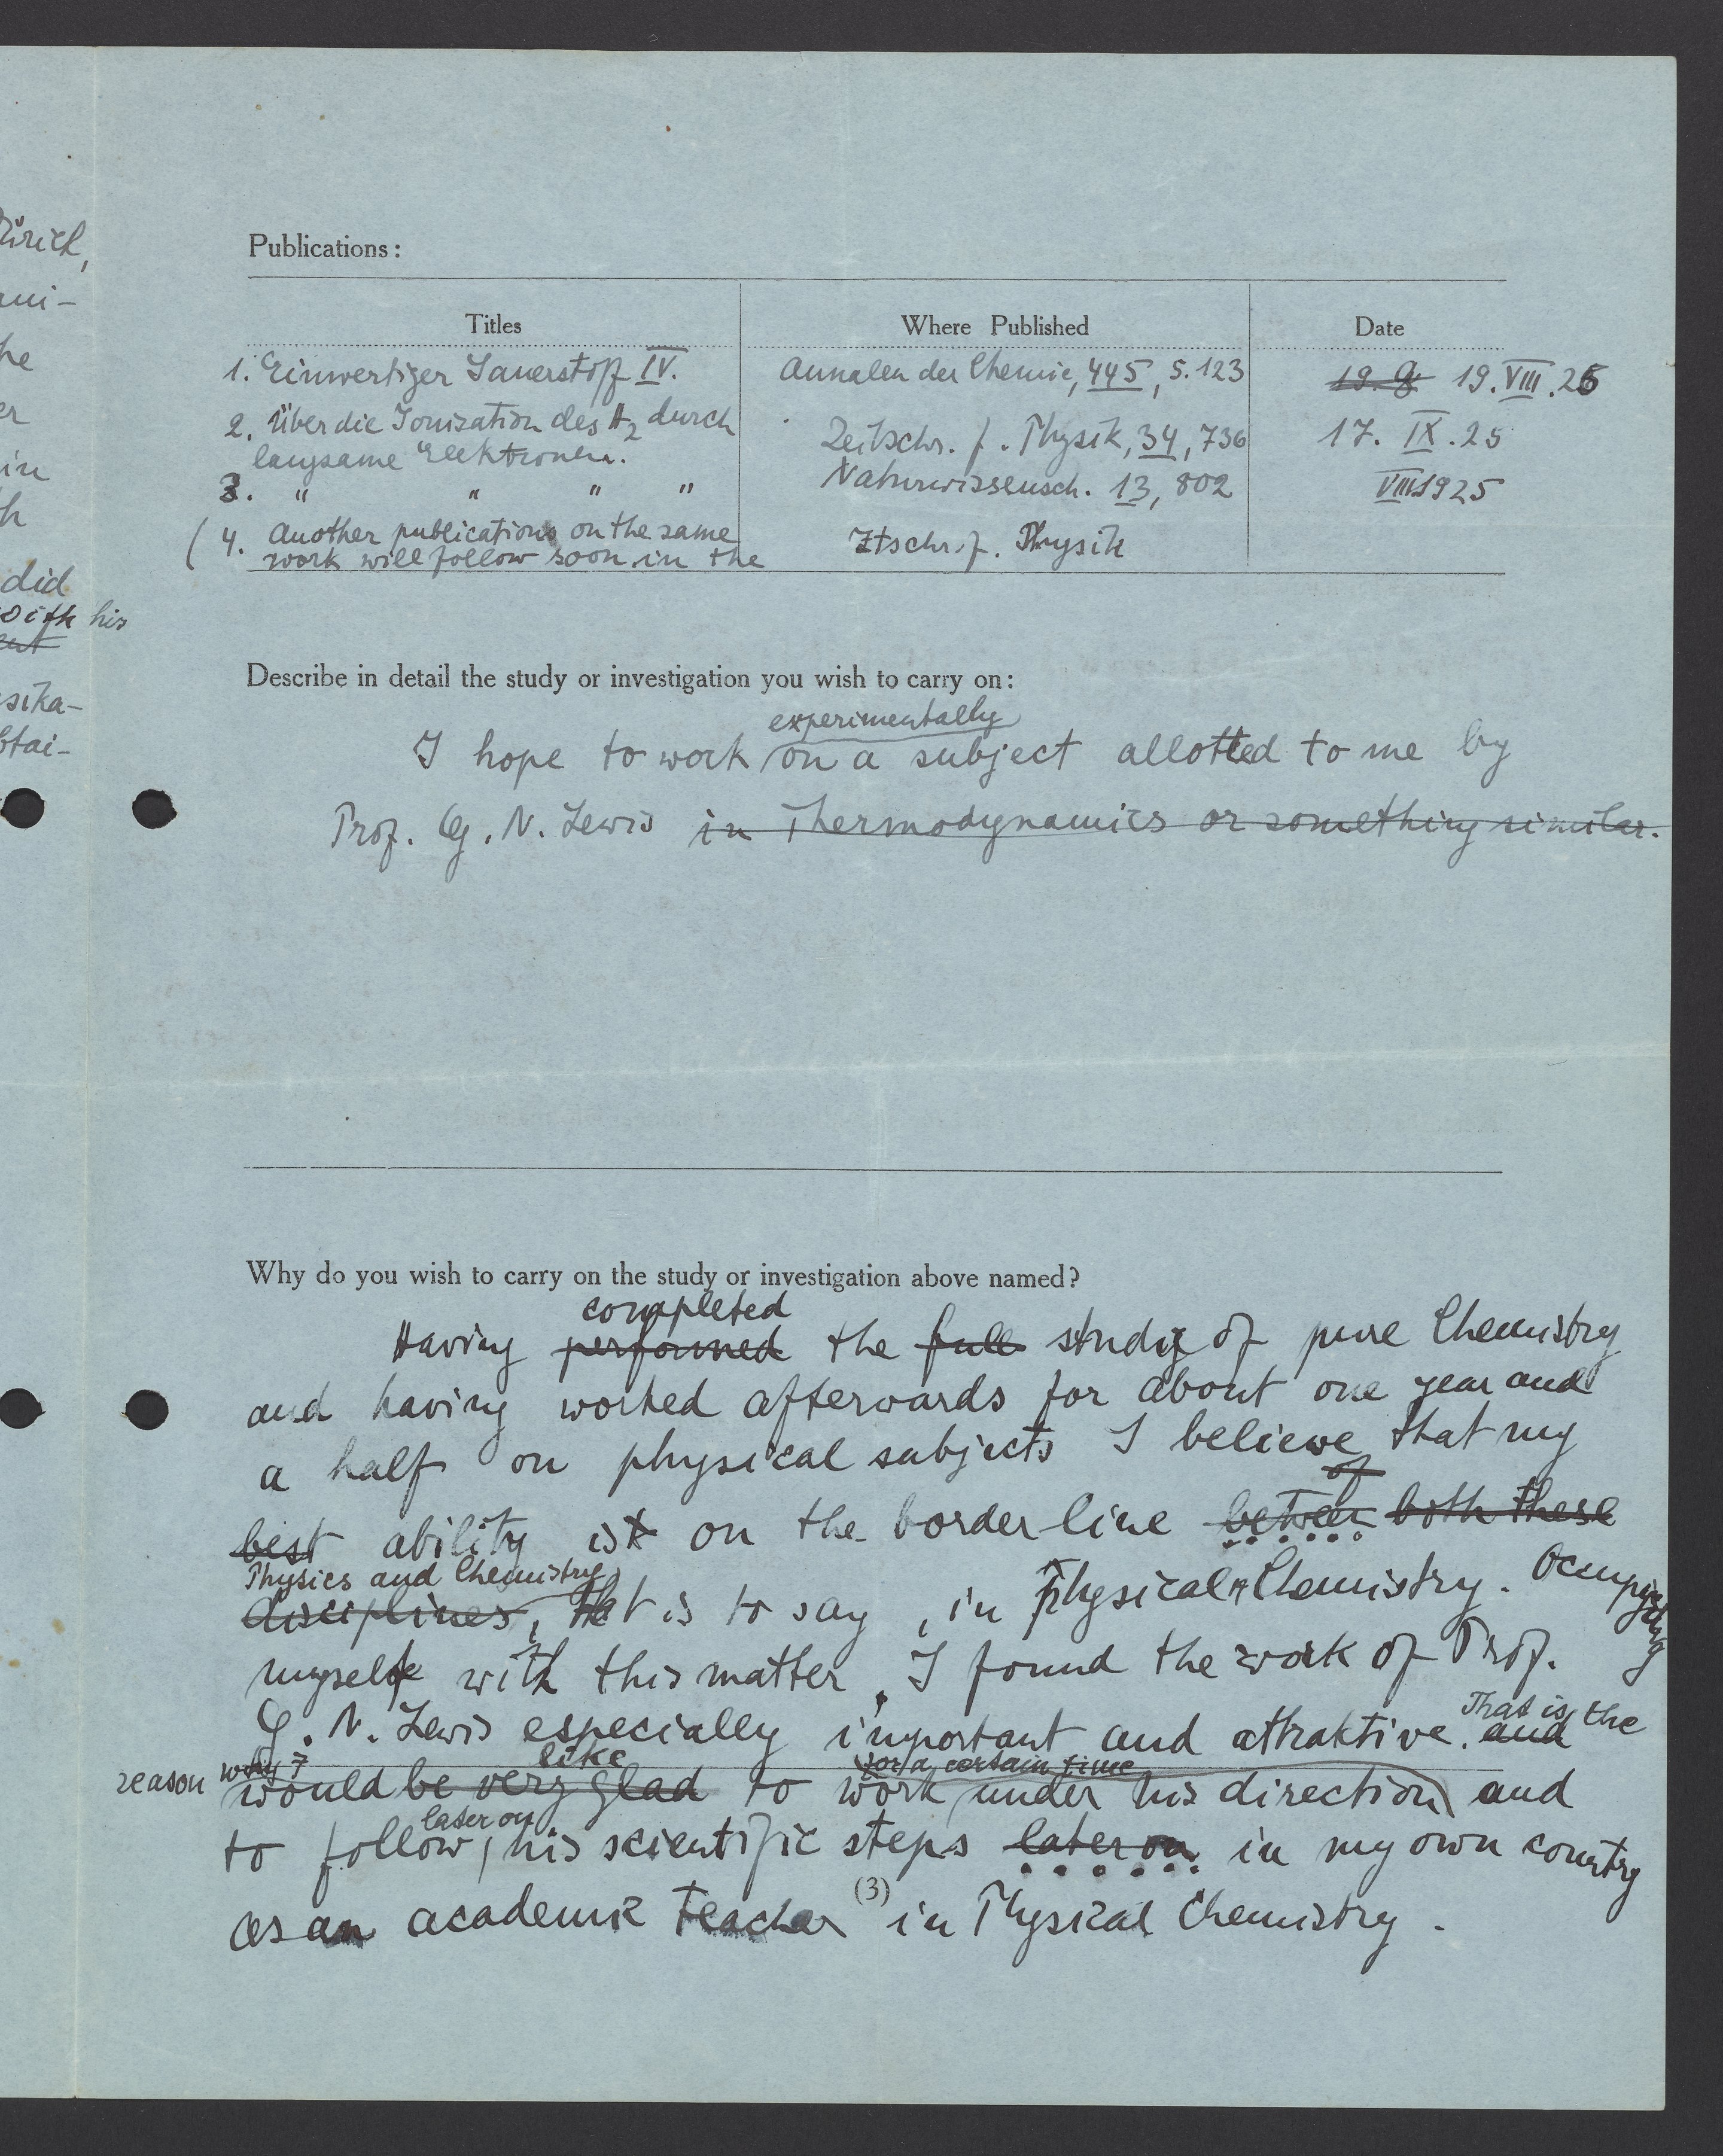 ürich,
mi-
he
er
in
h
did
with his
sika-
btai-
Publications:
Titles Where Published Date
1. Einwertiger Sauerstoff IV. Annalen der Chemie, 445, S. 123 19. 9. 19. VIII. 25
2. Über die Ionisation des H2 durch Zeitschr. f. Physik, 34, 736 17. IX. 25
langsame Elektronen.
3. " " " " Naturwissensch. 13, 802 VIII 1925
(4. Another publications on the same Ztschr. f. Physik
work will follow soon in the
Describe in detail the study or investigation you wish to carry on:
experimentally
I hope to work on a subject allotted to me by
Prof. G. N. Lewis in Thermodynamics or something similar.
Why do you wish to carry on the study or investigation above named?
completed
Having performed the full study of pure Chemistry
and having worked afterwards for about one year and
a half on physical subjects I believe that my
of
best ability is on the border-line between both these
Physics and Chemistry
disciplines, that is to say, in Physical Chemistry. Occupying
myself with this matter, I found the work of Prof.
That is the
G. N. Lewis especially important and attraktive. and
reason why I like for a certain time
would be very glad to work under his direction and
later on
to follow his scientific steps later on in my own country
(3)
as an academic teacher in Physical Chemistry.